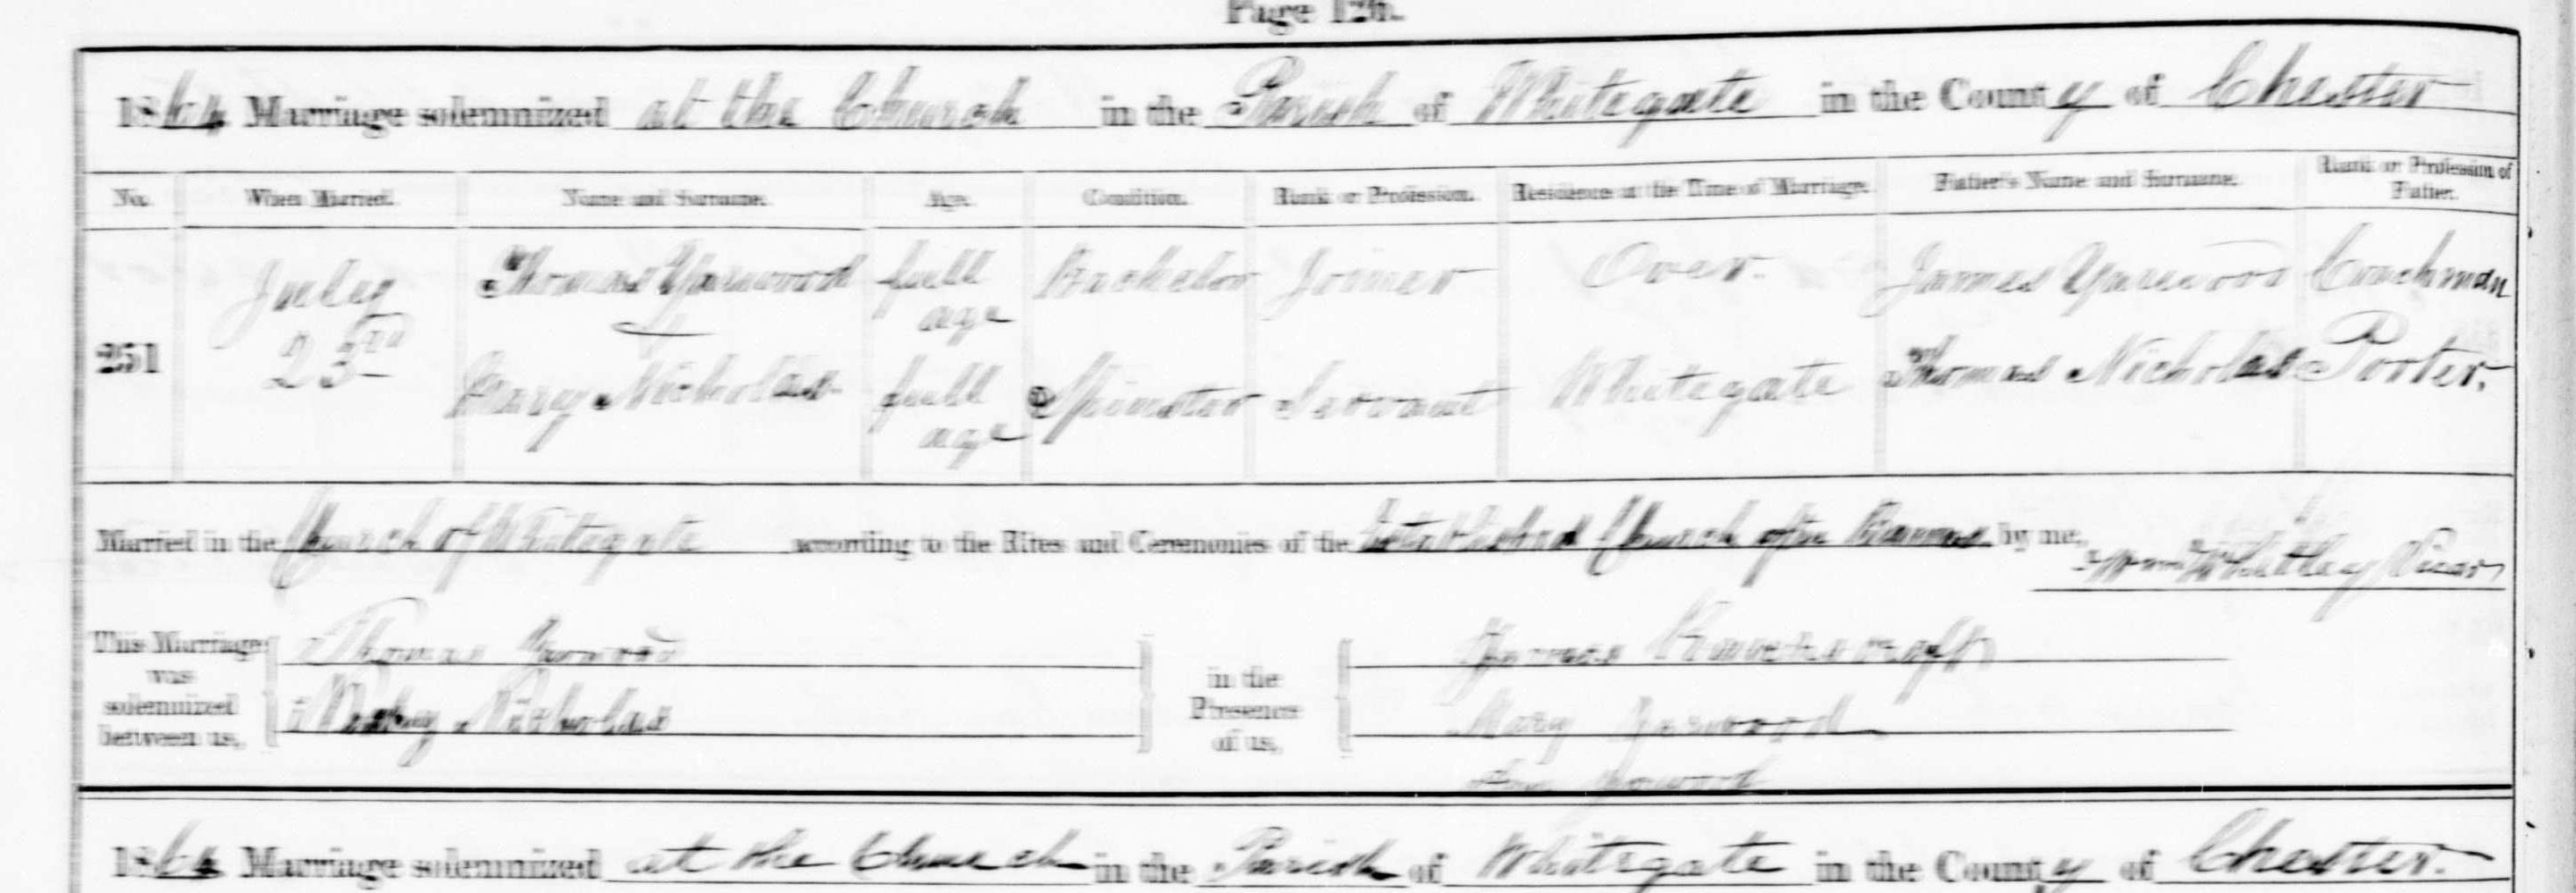 Page 126.
1864 Marriage solemnized at the Church in the Parish of Whitegate in the County of Chester
No. When Married. Name and Surname. Age. Condition. Rank or Profession. Residence at the Time of Marriage. Father's Name and Surname. Rank or Profession of Father.
251 July 23rd Thomas Yarwood full age Bachelor Joiner Over. James Yarwood Coachman
Mary Nicholas full age Spinster Servant Whitegate Thomas Nicholas Porter.
Married in the Church of Whitegate according to the Rites and Ceremonies of the Established Church after Banns by me, Whitley Vicar
This Marriage was solemnized between us, Thomas Yarwood in the Presence of us, Ravenscroft
Mary Nicholas Mary Yarwood
Yarwood
1864 Marriage solemnized at the Church in the Parish of Whitegate in the County of Chester.